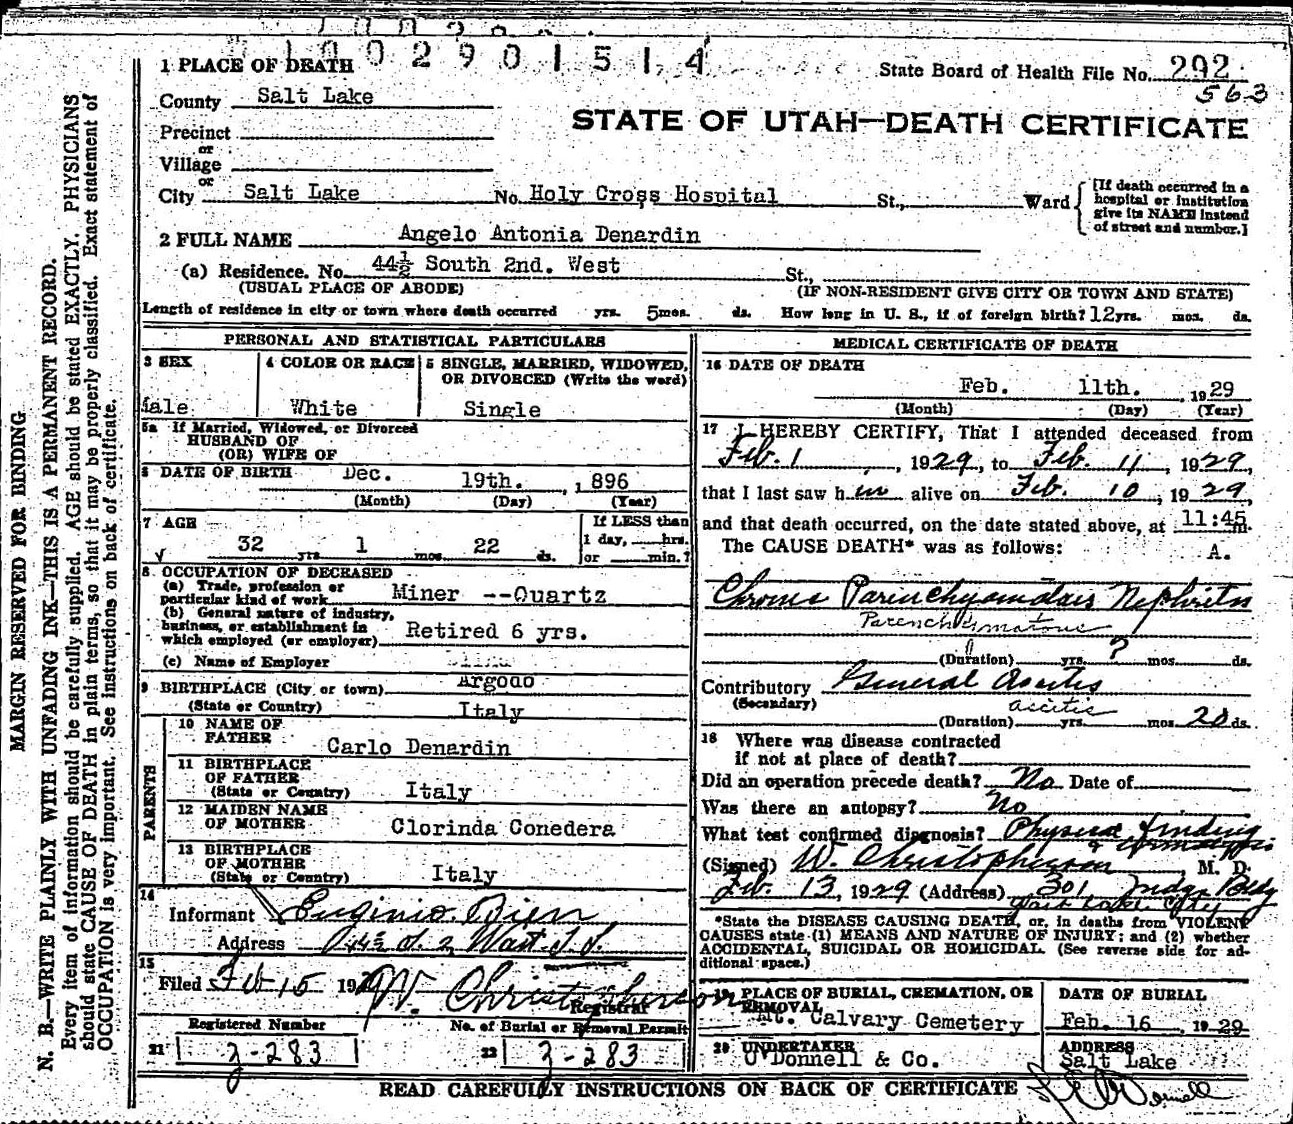 1002901514
1 PLACE OF DEATH
State Board of Health File No. 292
563
County Salt Lake
STATE OF UTAH—DEATH CERTIFICATE
Precinct
or
Village
or
City Salt Lake No. Holy Cross Hospital St., Ward
[If death occurred in a hospital or institution give its NAME instead of street and number.]
2 FULL NAME Angelo Antonia Denardin
(a) Residence. No. 44½ South 2nd. West St.,
(USUAL PLACE OF ABODE) (IF NON-RESIDENT GIVE CITY OR TOWN AND STATE)
Length of residence in city or town where death occurred yrs. 5 mos. ds. How long in U. S., if of foreign birth? 12 yrs. mos. ds.
PERSONAL AND STATISTICAL PARTICULARS
3 SEX 4 COLOR OR RACE 5 SINGLE, MARRIED, WIDOWED, OR DIVORCED (Write the word)
Male White Single
5a If Married, Widowed, or Divorced
HUSBAND OF
(OR) WIFE OF
6 DATE OF BIRTH Dec. 19th. , 896
(Month) (Day) (Year)
7 AGE
32 yrs 1 mos. 22 ds.
If LESS than
1 day, hrs.
or min.?
8 OCCUPATION OF DECEASED
(a) Trade, profession or particular kind of work Miner --Quartz
(b) General nature of industry, business, or establishment in which employed (or employer) Retired 6 yrs.
(c) Name of Employer
9 BIRTHPLACE (City or town) Argodo
(State or Country) Italy
PARENTS
10 NAME OF FATHER Carlo Denardin
11 BIRTHPLACE OF FATHER (State or Country) Italy
12 MAIDEN NAME OF MOTHER Clorinda Conedera
13 BIRTHPLACE OF MOTHER (State or Country) Italy
14
Informant Euginio
Address 44½ S. 2 West S. L.
15
Filed Feb 15 192 W. Christopherson
Registrar
Registered Number No. of Burial or Removal Permit
21 2-283 22 2-283
MEDICAL CERTIFICATE OF DEATH
16 DATE OF DEATH
Feb. 11th. , 1929
(Month) (Day) (Year)
17 I HEREBY CERTIFY, That I attended deceased from
Feb. 1 , 1929, to Feb. 11, 1929,
that I last saw him alive on Feb. 10, 1929,
and that death occurred, on the date stated above, at 11:45 m.
The CAUSE DEATH* was as follows: A.
Chronic Nephritis
Parenchymatous
(Duration) yrs. ? mos. ds.
Contributory General Ascitis
(Secondary) ascitic
(Duration) yrs. mos. 20 ds.
18 Where was disease contracted
if not at place of death?
Did an operation precede death? No Date of
Was there an autopsy? No
What test confirmed diagnosis? Physical finding
(Signed) W. Christopherson M. D.
Feb. 13, 1929 (Address) 301 Judge Bldg
Salt Lake City
*State the DISEASE CAUSING DEATH, or, in deaths from VIOLENT
CAUSES state (1) MEANS AND NATURE OF INJURY; and (2) whether
ACCIDENTAL, SUICIDAL OR HOMICIDAL. (See reverse side for additional space.)
19 PLACE OF BURIAL, CREMATION, OR REMOVAL DATE OF BURIAL
Mt. Calvary Cemetery Feb. 16 , 1929
20 UNDERTAKER ADDRESS
O'Donnell & Co. Salt Lake
READ CAREFULLY INSTRUCTIONS ON BACK OF CERTIFICATE
MARGIN RESERVED FOR BINDING
N. B.—WRITE PLAINLY WITH UNFADING INK—THIS IS A PERMANENT RECORD.
Every item of information should be carefully supplied. AGE should be stated EXACTLY. PHYSICIANS
should state CAUSE OF DEATH in plain terms, so that it may be properly classified. Exact statement of
OCCUPATION is very important. See instructions on back of certificate.